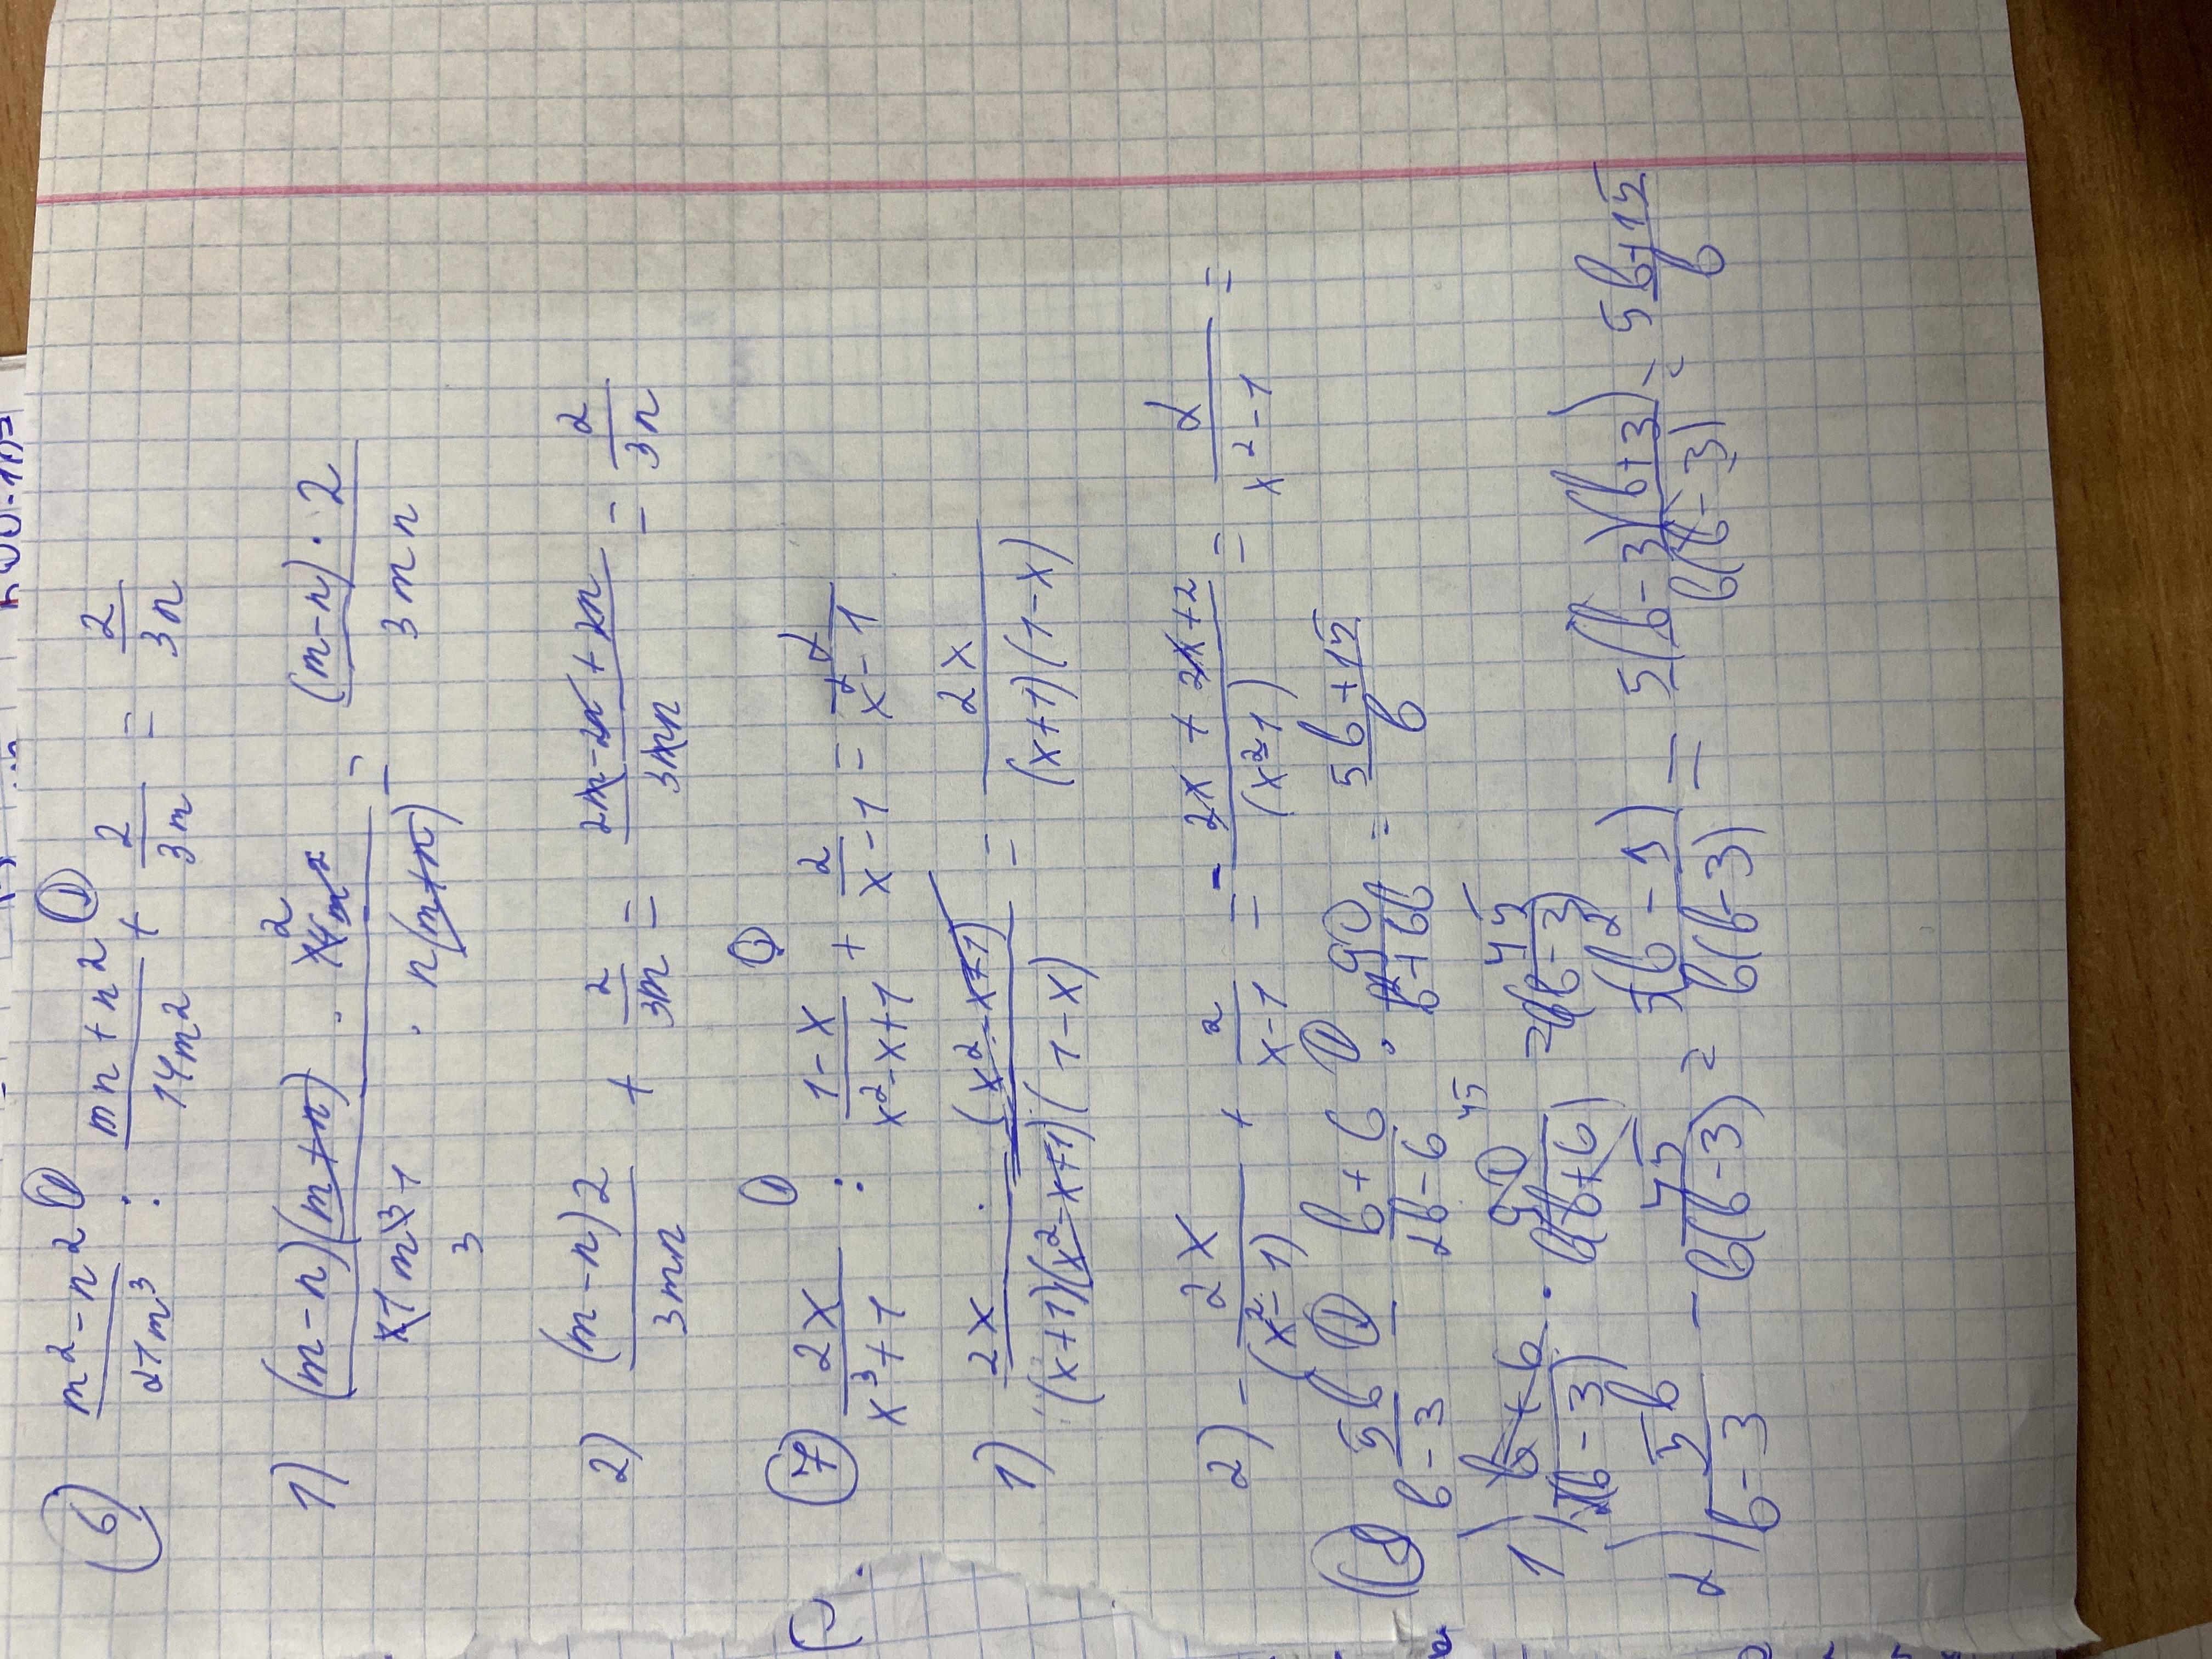 ⑥ (m² - n²)/(21m³) : (mn + n²)/(14m²) + 2/(3m) = 2/(3n)
1) ((m-n)(m+n) · 14m² 2)/(21m³ 3 · n(m+n)) = ((m-n) · 2)/(3mn)
2) ((m-n)2)/(3mn) + 2/(3m) = (2m - 2n + 2n)/(3mn) = 2/(3n)
⑦ 2x/(x³+1) : (1-x)/(x²-x+1) + 2/(x-1) = 2/(x²-1)
1) 2x · (x²-x+1)/((x+1)(x²-x+1)(1-x)) = 2x/((x+1)(1-x))
2) - 2x/(x²-1) + 2/(x-1) = (-2x + 2x + 2)/(x²-1) = 2/(x²-1) =
⑧ 5b/(b-3) - (b+6)/(2b-6) · 90/(b²+6b) = (5b+15)/b
1) (b+6)/(2(b-3)) · 90 45/(b(b+6)) = 45/(b(b-3))
2) 5b/(b-3) - 45/(b(b-3)) = 5(b²-9)/(b(b-3)) = 5(b-3)(b+3)/(b(b-3)) = (5b+15)/b